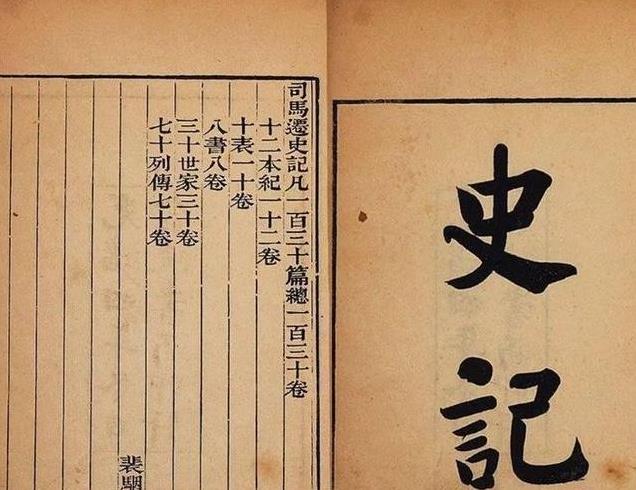 史記
司馬遷史記凡一百三十篇總一百三十卷
十二本紀一十二卷
十表一十卷
八書八卷
三十世家三十卷
七十列傳七十卷
裴駰